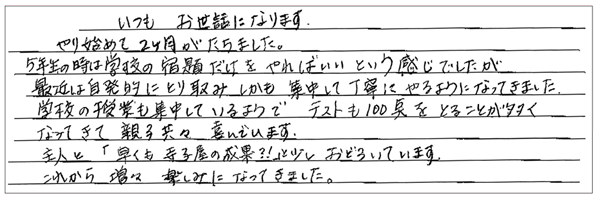 いつも お世話になります.
やり始めて2ヶ月がたちました。
5年生の時は学校の宿題だけをやればいいという感じでしたが
最近は自発的にとり取み しかも 集中して丁寧にやるようになってきました.
学校の授業も集中しているようで テストも100点をとることが多く
なってきて 親子共々 喜んでいます.
主人と「早くも寺子屋の成果?!」と少しおどろいています.
これから増々 楽しみになってきました。